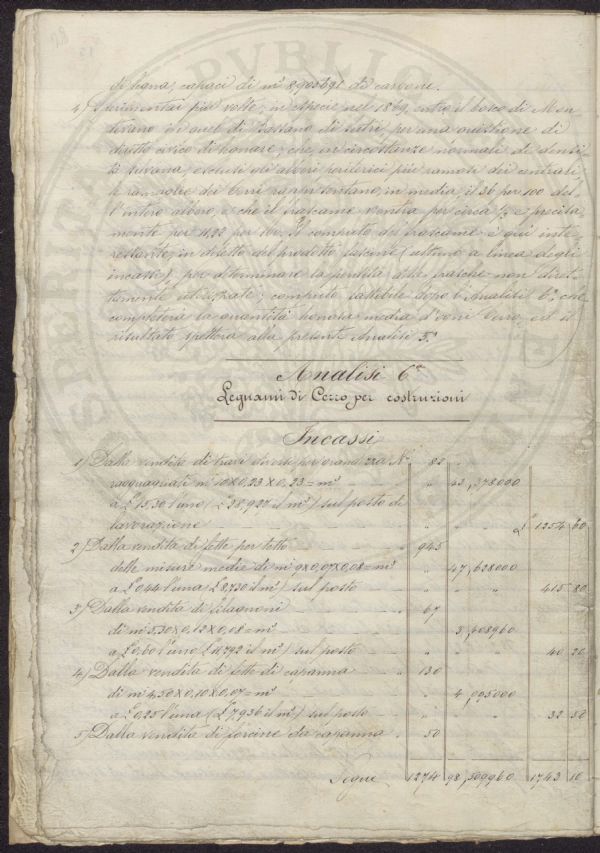 di legna, capaci di m³ 8,905891 di carbone.
4) Sperimentai più volte, in specie nel 1869, entro il bosco di Mon-
terano in quel di Bassano di Sutri per una questione di
diritto civico di lignare, che, in circostanze normali di densi-
tà silvana, esclusi gli alberi periferici più ramosi dei centrali,
le ramaglie dei Cerri rappresentano, in media, il 36 per 100 del-
l'intero albero, e che il frascame v'entra per circa ⅛, e precisa-
mente per 11,22 per 100. Il computo del frascame è qui inte-
ressante, in difetto del prodotto fascine (ultimo a linea degli
incassi), per determinare la perdita delle frasche non diret-
tamente utilizzate; computo fattibile dopo l'Analisi 6ª, che
completerà la quantità lignosa media d'ogni Cerro, ed il
risultato spetterà alla presente Analisi 5ª
Analisi 6ª
Legnami di Cerro per costruzioni
Incassi
1) Dalla vendita di travi diversi per grandezza N° 82
ragguagliati m¹ 10 X 0,23 X 0,23 = m³ " 43,378000
a £ 15,30 l'uno (£ 28,927 il m³) sul posto di
lavorazione " " £ 1254 60
2) Dalla vendita di fette per tetto 945
delle misure medie di m¹ 9 X 0,07 X 0,08 = m³ " 47,628000
a £ 0,44 l'una (£ 8,730 il m³) sul posto " " 415 80
3) Dalla vendita di filagnoni 67
di m¹ 5,30 X 0,12 X 0,08 = m³ " 3,408960
a £ 0,60 l'uno (£ 11,792 il m³) sul posto " " 40 20
4) Dalla vendita di fette di capanna 130
di m¹ 4,50 X 0,10 X 0,07 = m³ " 4,095000
a £ 0,25 l'una (£ 7,936 il m³) sul posto " " 32 50
5) Dalla vendita di forcine da capanna 50
Segue 1274 98,509960 1743 10